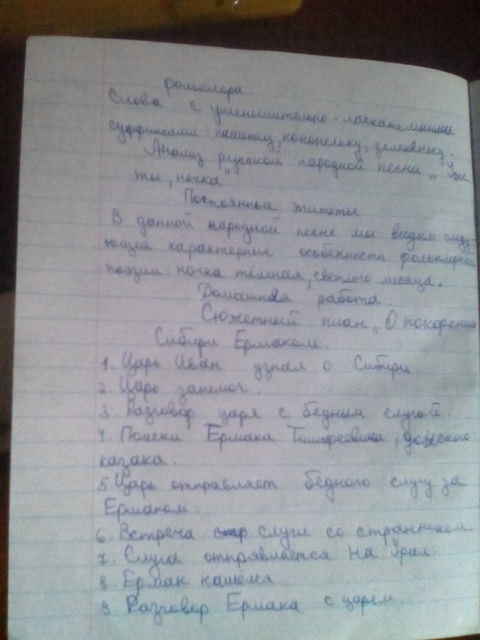 фольклора
Слова с уменьшительно-ласкательными
суффиксами: пашениц, конопельку, зеленику.
Анализ русской народной песни „Уж
ты, ночка"
Постоянные эпитеты
В данной народной песне мы видим следу-
ющие характерные особенности фольклорной
поэзии: ночка тёмная, светлого месяца.
Домашняя работа.
Сюжетный план „О покорении
Сибири Ермаком.
1. Царь Иван узнал о Сибири.
2. Царь занемог.
3. Разговор царя с бедным слугой.
4. Поиски Ермака Тимофеевича, донского
казака.
5. Царь отправляет бедного слугу за
Ермаком.
6. Встреча слуги со странником.
7. Слуга отправляется на Урал.
8. Ермак нашелся
9. Разговор Ермака с царем